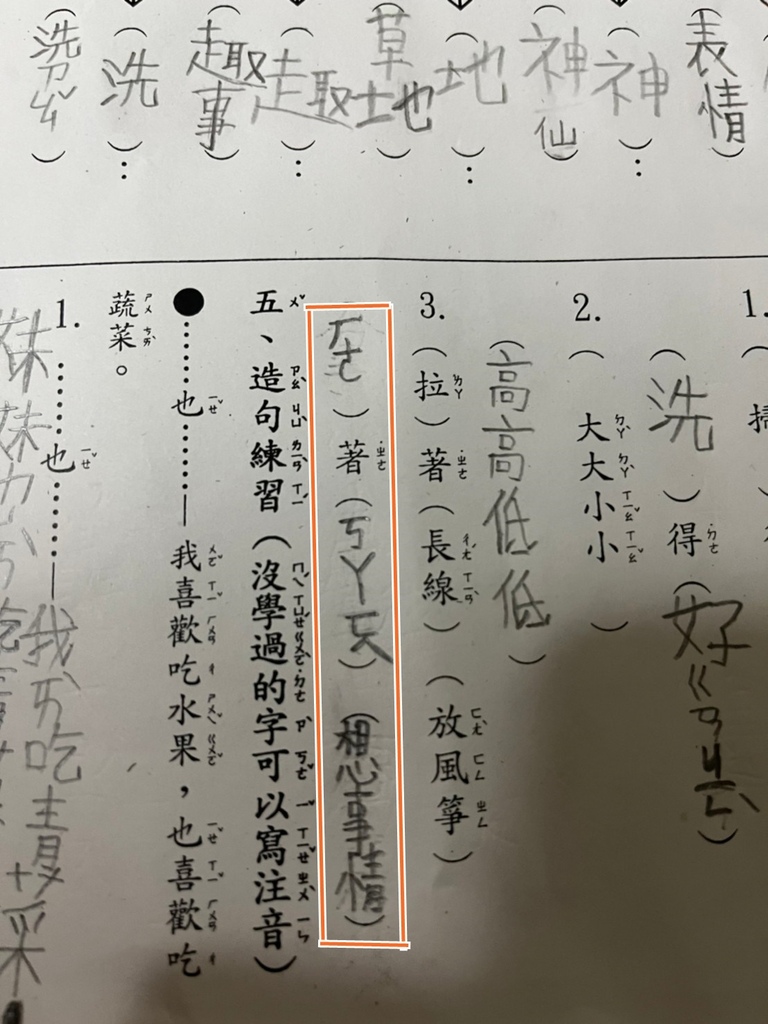 (表情)
(神)…
(神仙)
(地)…
(草地)
(趣)…
(趣事)
(洗)…
(洗ㄗㄠˇ)
1.(掃
(洗)得(好ㄍㄢㄐㄧㄥˋ)
2.(大大小小)
(高高低低)
3.(拉)著(長線)(放風箏)
ㄏㄜ)著(ㄎㄚㄈㄟ)(想事情)
五、造句練習(沒學過的字可以寫注音)
●……也……—我喜歡吃水果,也喜歡吃
蔬菜。
1.……也……—我ㄞˋ吃青
妹妹